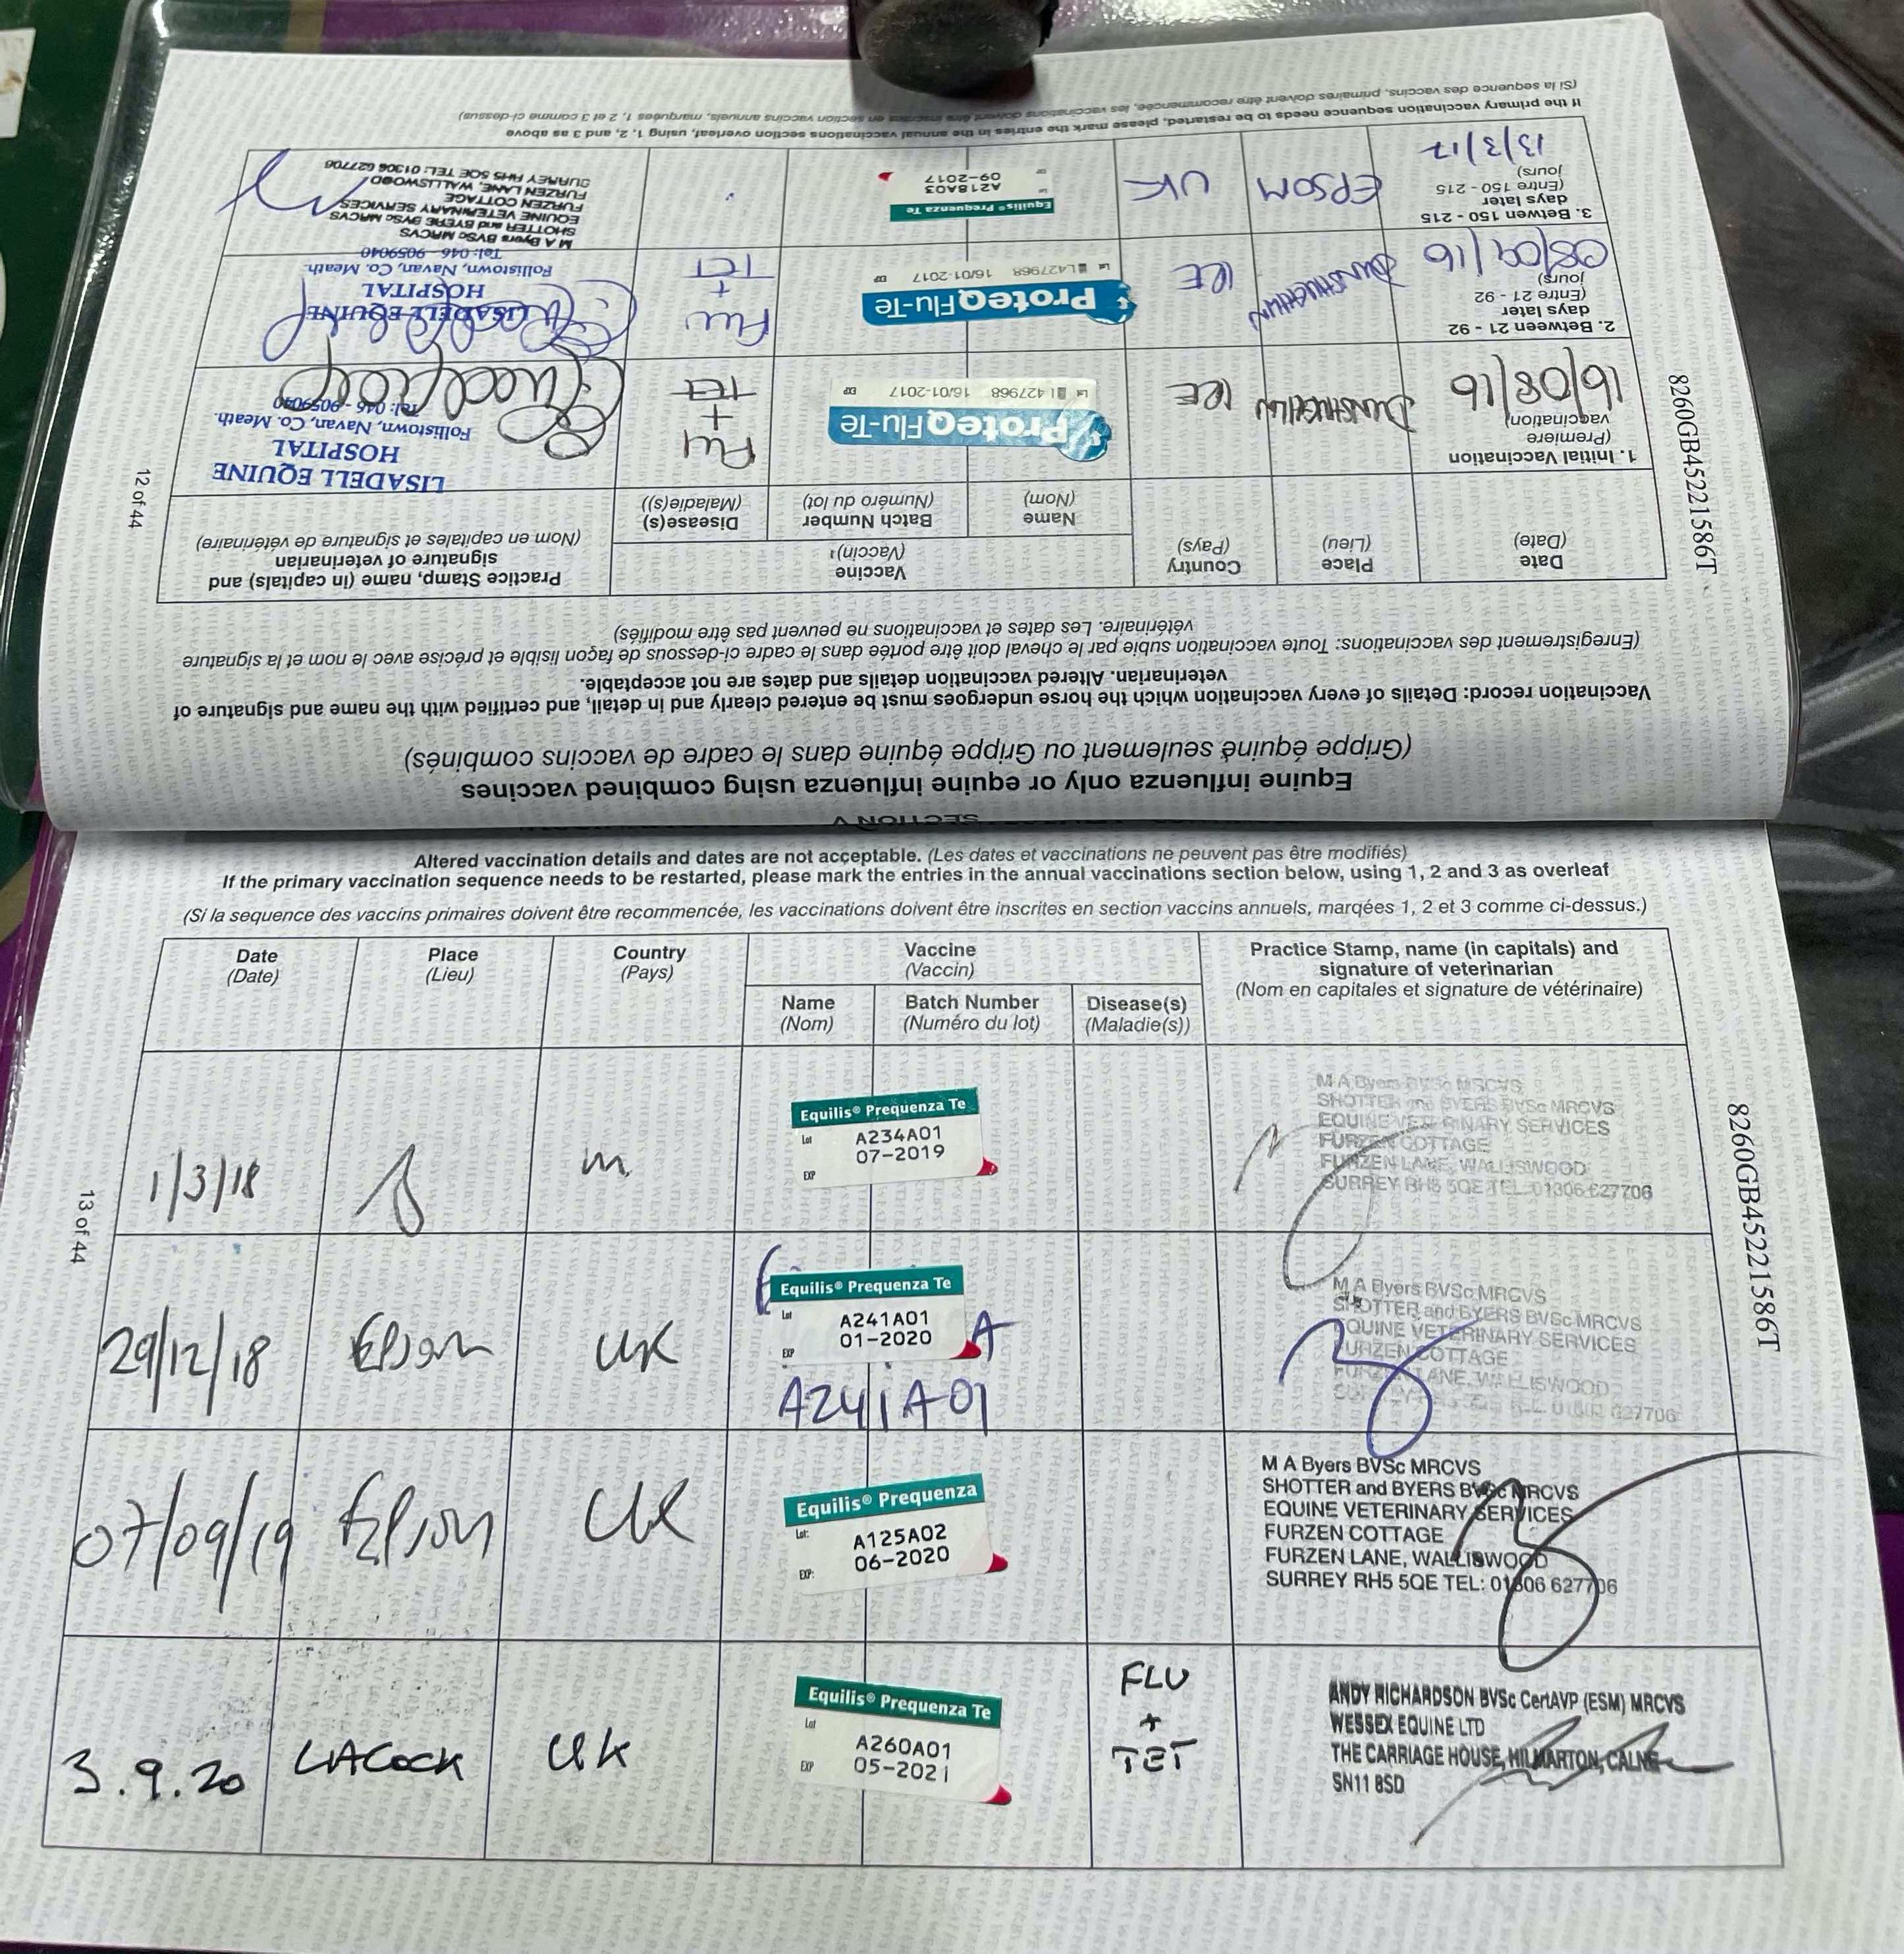 SECTION V
Equine influenza only or equine influenza using combined vaccines
(Grippe équine seulement ou Grippe équine dans le cadre de vaccins combinés)
Vaccination record: Details of every vaccination which the horse undergoes must be entered clearly and in detail, and certified with the name and signature of
veterinarian. Altered vaccination details and dates are not acceptable.
(Enregistrement des vaccinations: Toute vaccination subie par le cheval doit être portée dans le cadre ci-dessous de façon lisible et précise avec le nom et la signature
vétérinaire. Les dates et vaccinations ne peuvent pas être modifiés)
Date
(Date)
Place
(Lieu)
Country
(Pays)
Vaccine
(Vaccin)
Name
(Nom)
Batch Number
(Numéro du lot)
Disease(s)
(Maladie(s))
Practice Stamp, name (in capitals) and
signature of veterinarian
(Nom en capitales et signature de vétérinaire)
1. Initial Vaccination
(Premiere
vaccination)
16/08/16
DUNSHAUGHLIN
IRE
ProteqFlu-Te
Lot L427968 16/01-2017 EXP
FLU
+
TET
LISADELL EQUINE
HOSPITAL
Follistown, Navan, Co. Meath.
Tel: 046 - 9059040
2. Between 21 - 92
days later
(Entre 21 - 92
jours)
08/09/16
DUNSHAUGHLIN
IRE
ProteqFlu-Te
Lot L427968 16/01-2017 EXP
Flu
+
TET
LISADELL EQUINE
HOSPITAL
Follistown, Navan, Co. Meath.
Tel: 046 - 9059040
3. Betwen 150 - 215
days later
(Entre 150 - 215
jours)
13/3/17
EPSOM
UK
Equilis® Prequenza Te
Lot A218A03
EXP 09-2017
M A Byers BVSc MRCVS
SHOTTER and BYERS BVSc MRCVS
EQUINE VETERINARY SERVICES
FURZEN COTTAGE
FURZEN LANE, WALLISWOOD
SURREY RH5 5QE TEL: 01306 627706
If the primary vaccination sequence needs to be restarted, please mark the entries in the annual vaccinations section overleaf, using 1, 2, and 3 as above
(Si la sequence des vaccins, primaires doivent être recommencée, les vaccinations doivent être inscrites en section vaccins annuels, marquées 1, 2 et 3 comme ci-dessus)
12 of 44
8260GB45221586T
Altered vaccination details and dates are not acceptable. (Les dates et vaccinations ne peuvent pas être modifiés)
If the primary vaccination sequence needs to be restarted, please mark the entries in the annual vaccinations section below, using 1, 2 and 3 as overleaf
(Si la sequence des vaccins primaires doivent être recommencée, les vaccinations doivent être inscrites en section vaccins annuels, marqées 1, 2 et 3 comme ci-dessus.)
Date
(Date)
Place
(Lieu)
Country
(Pays)
Vaccine
(Vaccin)
Name
(Nom)
Batch Number
(Numéro du lot)
Disease(s)
(Maladie(s))
Practice Stamp, name (in capitals) and
signature of veterinarian
(Nom en capitales et signature de vétérinaire)
1/3/18
Equilis® Prequenza Te
Lot A234A01
EXP 07-2019
M A Byers BVSc MRCVS
SHOTTER and BYERS BVSc MRCVS
EQUINE VETERINARY SERVICES
FURZEN COTTAGE
FURZEN LANE, WALLISWOOD
SURREY RH5 5QE TEL: 01306 627706
29/12/18
Epsom
UK
Equilis® Prequenza Te
Lot A241A01
EXP 01-2020
A241A01
M A Byers BVSc MRCVS
SHOTTER and BYERS BVSc MRCVS
EQUINE VETERINARY SERVICES
FURZEN COTTAGE
FURZEN LANE, WALLISWOOD
627706
07/09/19
Epsom
UK
Equilis® Prequenza
Lot: A125A02
EXP: 06-2020
M A Byers BVSc MRCVS
SHOTTER and BYERS BVSc MRCVS
EQUINE VETERINARY SERVICES
FURZEN COTTAGE
FURZEN LANE, WALLISWOOD
SURREY RH5 5QE TEL: 01306 627706
3.9.20
LACOCK
UK
Equilis® Prequenza Te
Lot A260A01
EXP 05-2021
FLU
+
TET
ANDY RICHARDSON BVSc CertAVP (ESM) MRCVS
WESSEX EQUINE LTD
THE CARRIAGE HOUSE, HILMARTON, CALNE
SN11 8SD
13 of 44
8260GB45221586T